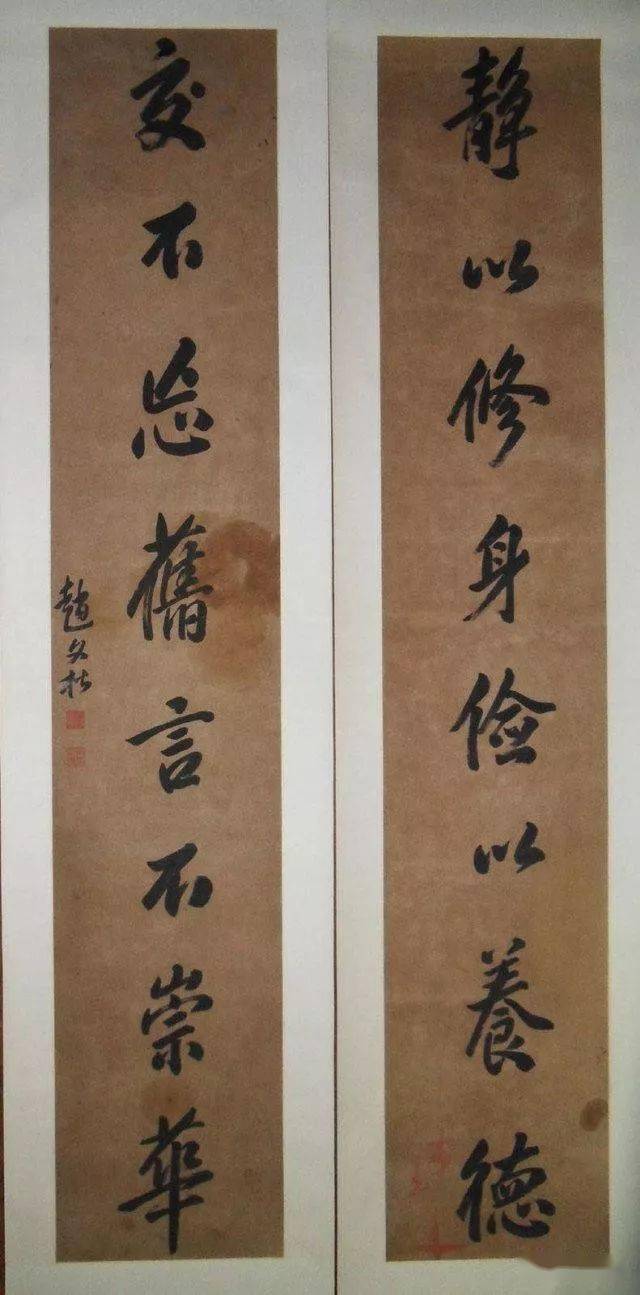 靜以修身儉以養德
交不忘舊言不崇華
趙文楷